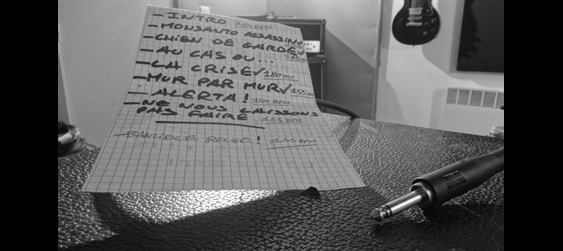 - INTRO
- MONSANTO ASSASSINS
- CHIEN DE GARDE
- AU CAS OU...
- LA CRISE √ 180 BPM
- MUR PAR MUR √ 155 BPM
- ALERTA !
- NE NOUS LAISSONS
PAS FAIRE
BANLIEUE ROUGE !